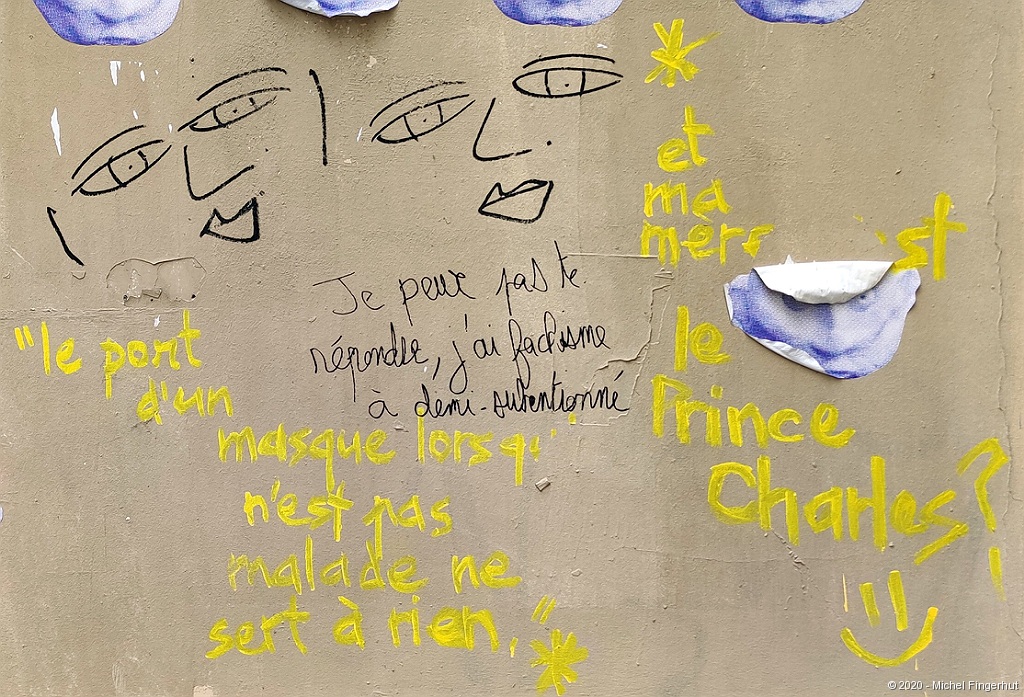 "le port
d'un
masque lorsq
n'est pas
malade ne
sert à rien."*
Je peux pas te
répondre, j'ai fachisme
à demi-subentionné
*
et
ma
mèr st
le
Prince
Charles?!
© 2020 - Michel Fingerhut